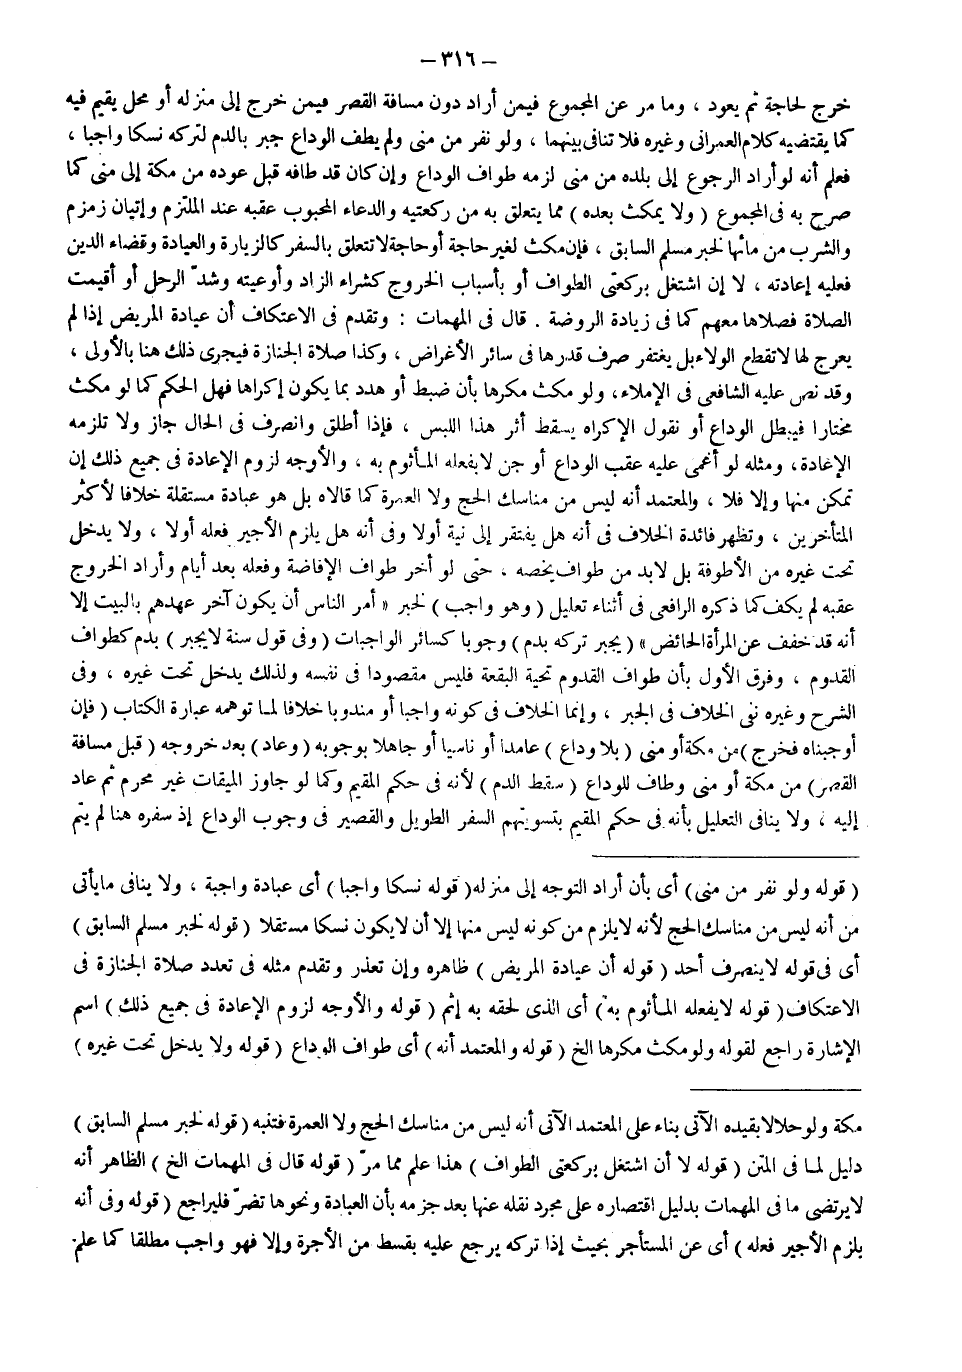 – ٣١٦ –
خرج لحاجة ثم يعود ، وما مر عن المجموع فيمن أراد دون مسافة القصر فيمن خرج إلى منزله أو محل يقيم فيه
كما يقتضيه كلام العمرانى وغيره فلا تنافى بينهما ، ولو نفر من منى ولم يطف الوداع جبر بالدم لتركه نسكا واجبا ،
فعلم أنه لو أراد الرجوع إلى بلده من منى لزمه طواف الوداع وإن كان قد طافه قبل عوده من مكة إلى منى كما
صرح به فى المجموع ( ولا يمكث بعده ) مما يتعلق به من ركعتيه والدعاء المحبوب عقبه عند الملتزم وإتيان زمزم
والشرب من مائها لخبر مسلم السابق ، فإن مكث لغير حاجة أو حاجة لا تتعلق بالسفر كالزيارة والعيادة وقضاء الدين
فعليه إعادته ، لا إن اشتغل بركعتى الطواف أو بأسباب الخروج كشراء الزاد وأوعيته وشدّ الرحل أو أقيمت
الصلاة فصلاها معهم كما فى زيادة الروضة . قال فى المهمات : وتقدم فى الاعتكاف أن عيادة المريض إذا لم
يعرج لها لا تقطع الولاء بل يغتفر صرف قدرها فى سائر الأغراض ، وكذا صلاة الجنازة فيجرى ذلك هنا بالأولى ،
وقد نص عليه الشافعى فى الإملاء، ولو مكث مكرها بأن ضبط أو هدد بما يكون إكراها فهل الحكم كما لو مكث
مختارا فيبطل الوداع أو نقول الإكراه يسقط أثر هذا اللبس ، فإذا أطلق وانصرف فى الحال جاز ولا تلزمه
الإعادة، ومثله لو أغمى عليه عقب الوداع أو جن لا بفعله المأثوم به ، والأوجه لزوم الإعادة فى جميع ذلك إن
تمكن منها وإلا فلا ، والمعتمد أنه ليس من مناسك الحج ولا العمرة كما قالاه بل هو عبادة مستقلة خلافا لأكثر
المتأخرين ، وتظهر فائدة الخلاف فى أنه هل يفتقر إلى نية أولا وفى أنه هل يلزم الأجير فعله أولا ، ولا يدخل
تحت غيره من الأطوفة بل لابد من طواف يخصه ، حتى لو أخر طواف الإفاضة وفعله بعد أيام وأراد الخروج
عقبه لم يكف كما ذكره الرافعى فى أثناء تعليل ( وهو واجب ) لخبر « أمر الناس أن يكون آخر عهدهم بالبيت إلا
أنه قد خفف عن المرأة الحائض » ( يجبر تركه بدم ) وجوبا كسائر الواجبات ( وفى قول سنة لا يجبر ) بدم كطواف
القدوم ، وفرق الأول بأن طواف القدوم تحية البقعة فليس مقصودا فى نفسه ولذلك يدخل تحت غيره ، وفى
الشرح وغيره نفى الخلاف فى الجبر ، وإنما الخلاف فى كونه واجبا أو مندوبا خلافا لما توهمه عبارة الكتاب ( فإن
أوجبناه فخرج ) من مكة أو منى ( بلا وداع ) عامدا أو ناسيا أو جاهلا بوجوبه ( وعاد ) بعد خروجه ( قبل مسافة
القصر ) من مكة أو منى وطاف للوداع ( سقط الدم ) لأنه فى حكم المقيم وكما لو جاوز الميقات غير محرم ثم عاد
إليه ، ولا ينافى التعليل بأنه فى حكم المقيم بتسويتهم السفر الطويل والقصير فى وجوب الوداع إذ سفره هنا لم يتم
( قوله ولو نفر من منى ) أى بأن أراد التوجه إلى منزله ( قوله نسكا واجبا ) أى عبادة واجبة ، ولا ينافى ما يأتى
من أنه ليس من مناسك الحج لأنه لا يلزم من كونه ليس منها إلا أن لا يكون نسكا مستقلا ( قوله لخبر مسلم السابق )
أى فى قوله لا ينصرف أحد ( قوله أن عيادة المريض ) ظاهره وإن تعذر وتقدم مثله فى تعدد صلاة الجنازة فى
الاعتكاف ( قوله لا بفعله المأثوم به ) أى الذى لحقه به إثم ( قوله والأوجه لزوم الإعادة فى جميع ذلك ) اسم
الإشارة راجع لقوله ولو مكث مكرها الخ ( قوله والمعتمد أنه ) أى طواف الوداع ( قوله ولا يدخل تحت غيره )
مكة ولو حلالا بقيده الآتى بناء على المعتمد الآتى أنه ليس من مناسك الحج ولا العمرة فتنبه ( قوله لخبر مسلم السابق )
دليل لما فى المتن ( قوله لا أن اشتغل بركعتى الطواف ) هذا علم مما مرّ ( قوله قال فى المهمات الخ ) الظاهر أنه
لا يرتضى ما فى المهمات بدليل اقتصاره على مجرد نقله عنها بعد جزمه بأن العيادة ونحوها تضرّ فليراجع ( قوله وفى أنه
يلزم الأجير فعله ) أى عن المستأجر بحيث إذا تركه يرجع عليه بقسط من الأجرة وإلا فهو واجب مطلقا كما علم